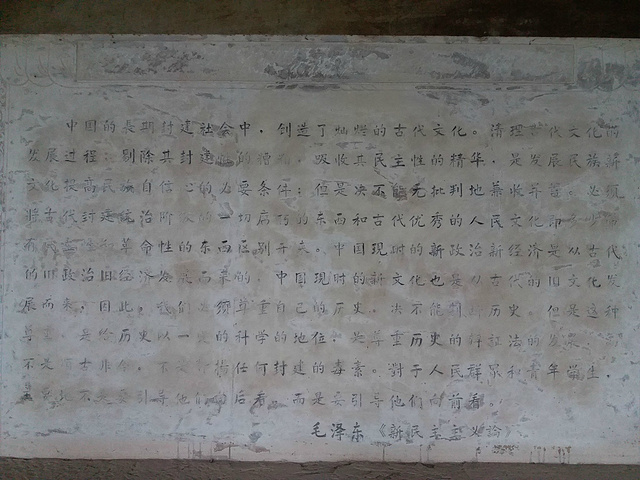 中国的长期封建社会中，创造了灿烂的古代文化。清理古代文化的
发展过程；剔除其封建性的糟粕，吸收其民主性的精华，是发展民族新
文化提高民族自信心的必要条件；但是决不能无批判地兼收并蓄。必须
将古代封建统治阶级的一切腐朽的东西和古代优秀的人民文化即
革命性的东西区别开来。中国现时的新政治新经济是从古代
的旧政治旧经济发展而来的，中国现时的新文化也是从古代的旧文化发
展而来，因此，我们必须尊重自己的历史，决不能割断历史。但是这种
尊重，是给历史以一定的科学的地位，是尊重历史的辩证法的发展，
不是 古非今，不是 任何封建的毒素。對于人民群众和青年学生，
不是要引导他们向后看，而是要引导他们向前看。
毛泽东《新民主主义論》